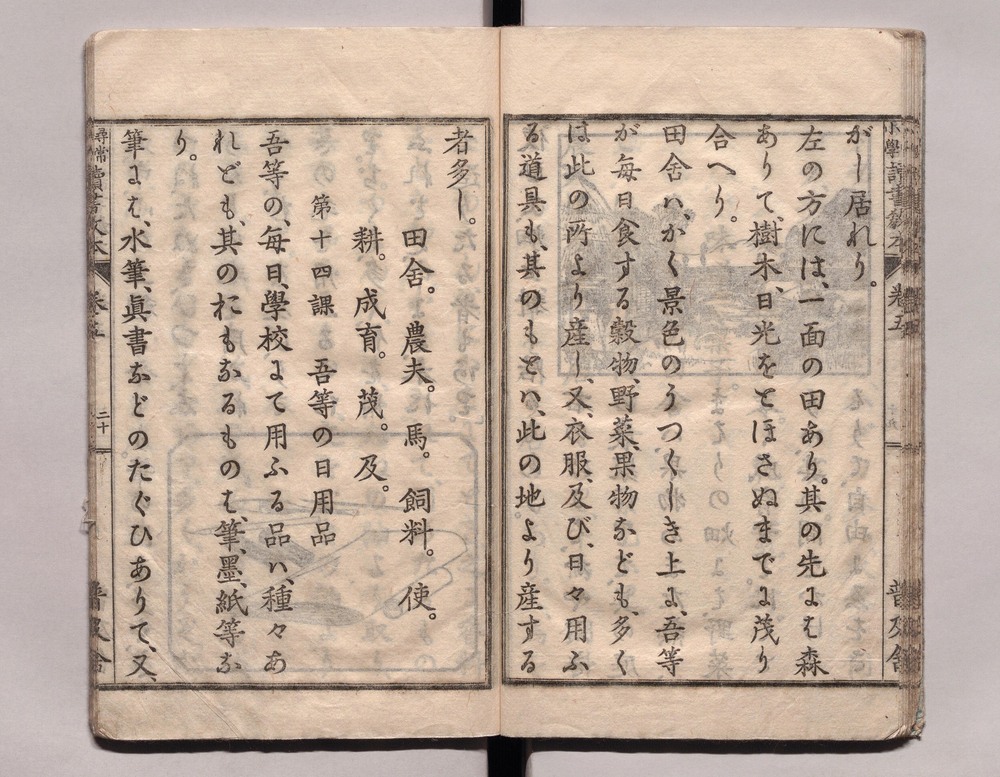 がし居れり。
左の方には、一面の田あり。其の先よは森
ありて、樹木、日光をとほさぬまでよ茂り
合へり。
田舎ハ、かく景色のうつくしき上よ、吾等
が毎日食する穀物、野菜、果物なども、多く
は此の所より産し、又、衣服、及び、日々用ふ
る道具も、其のもとハ、此の地より産する
者多し。
田舎。農夫。馬。飼料。使。
耕。成育。茂。及。
第十四課 吾等の日用品
吾等の、毎日、學校よて用ふる品ハ、種々あ
れども、其のおもなるものは、筆、墨、紙等な
り。
筆よは、水筆、眞書などのたぐひありて、又、
尋常讀書教本 卷五 二十 普及舍